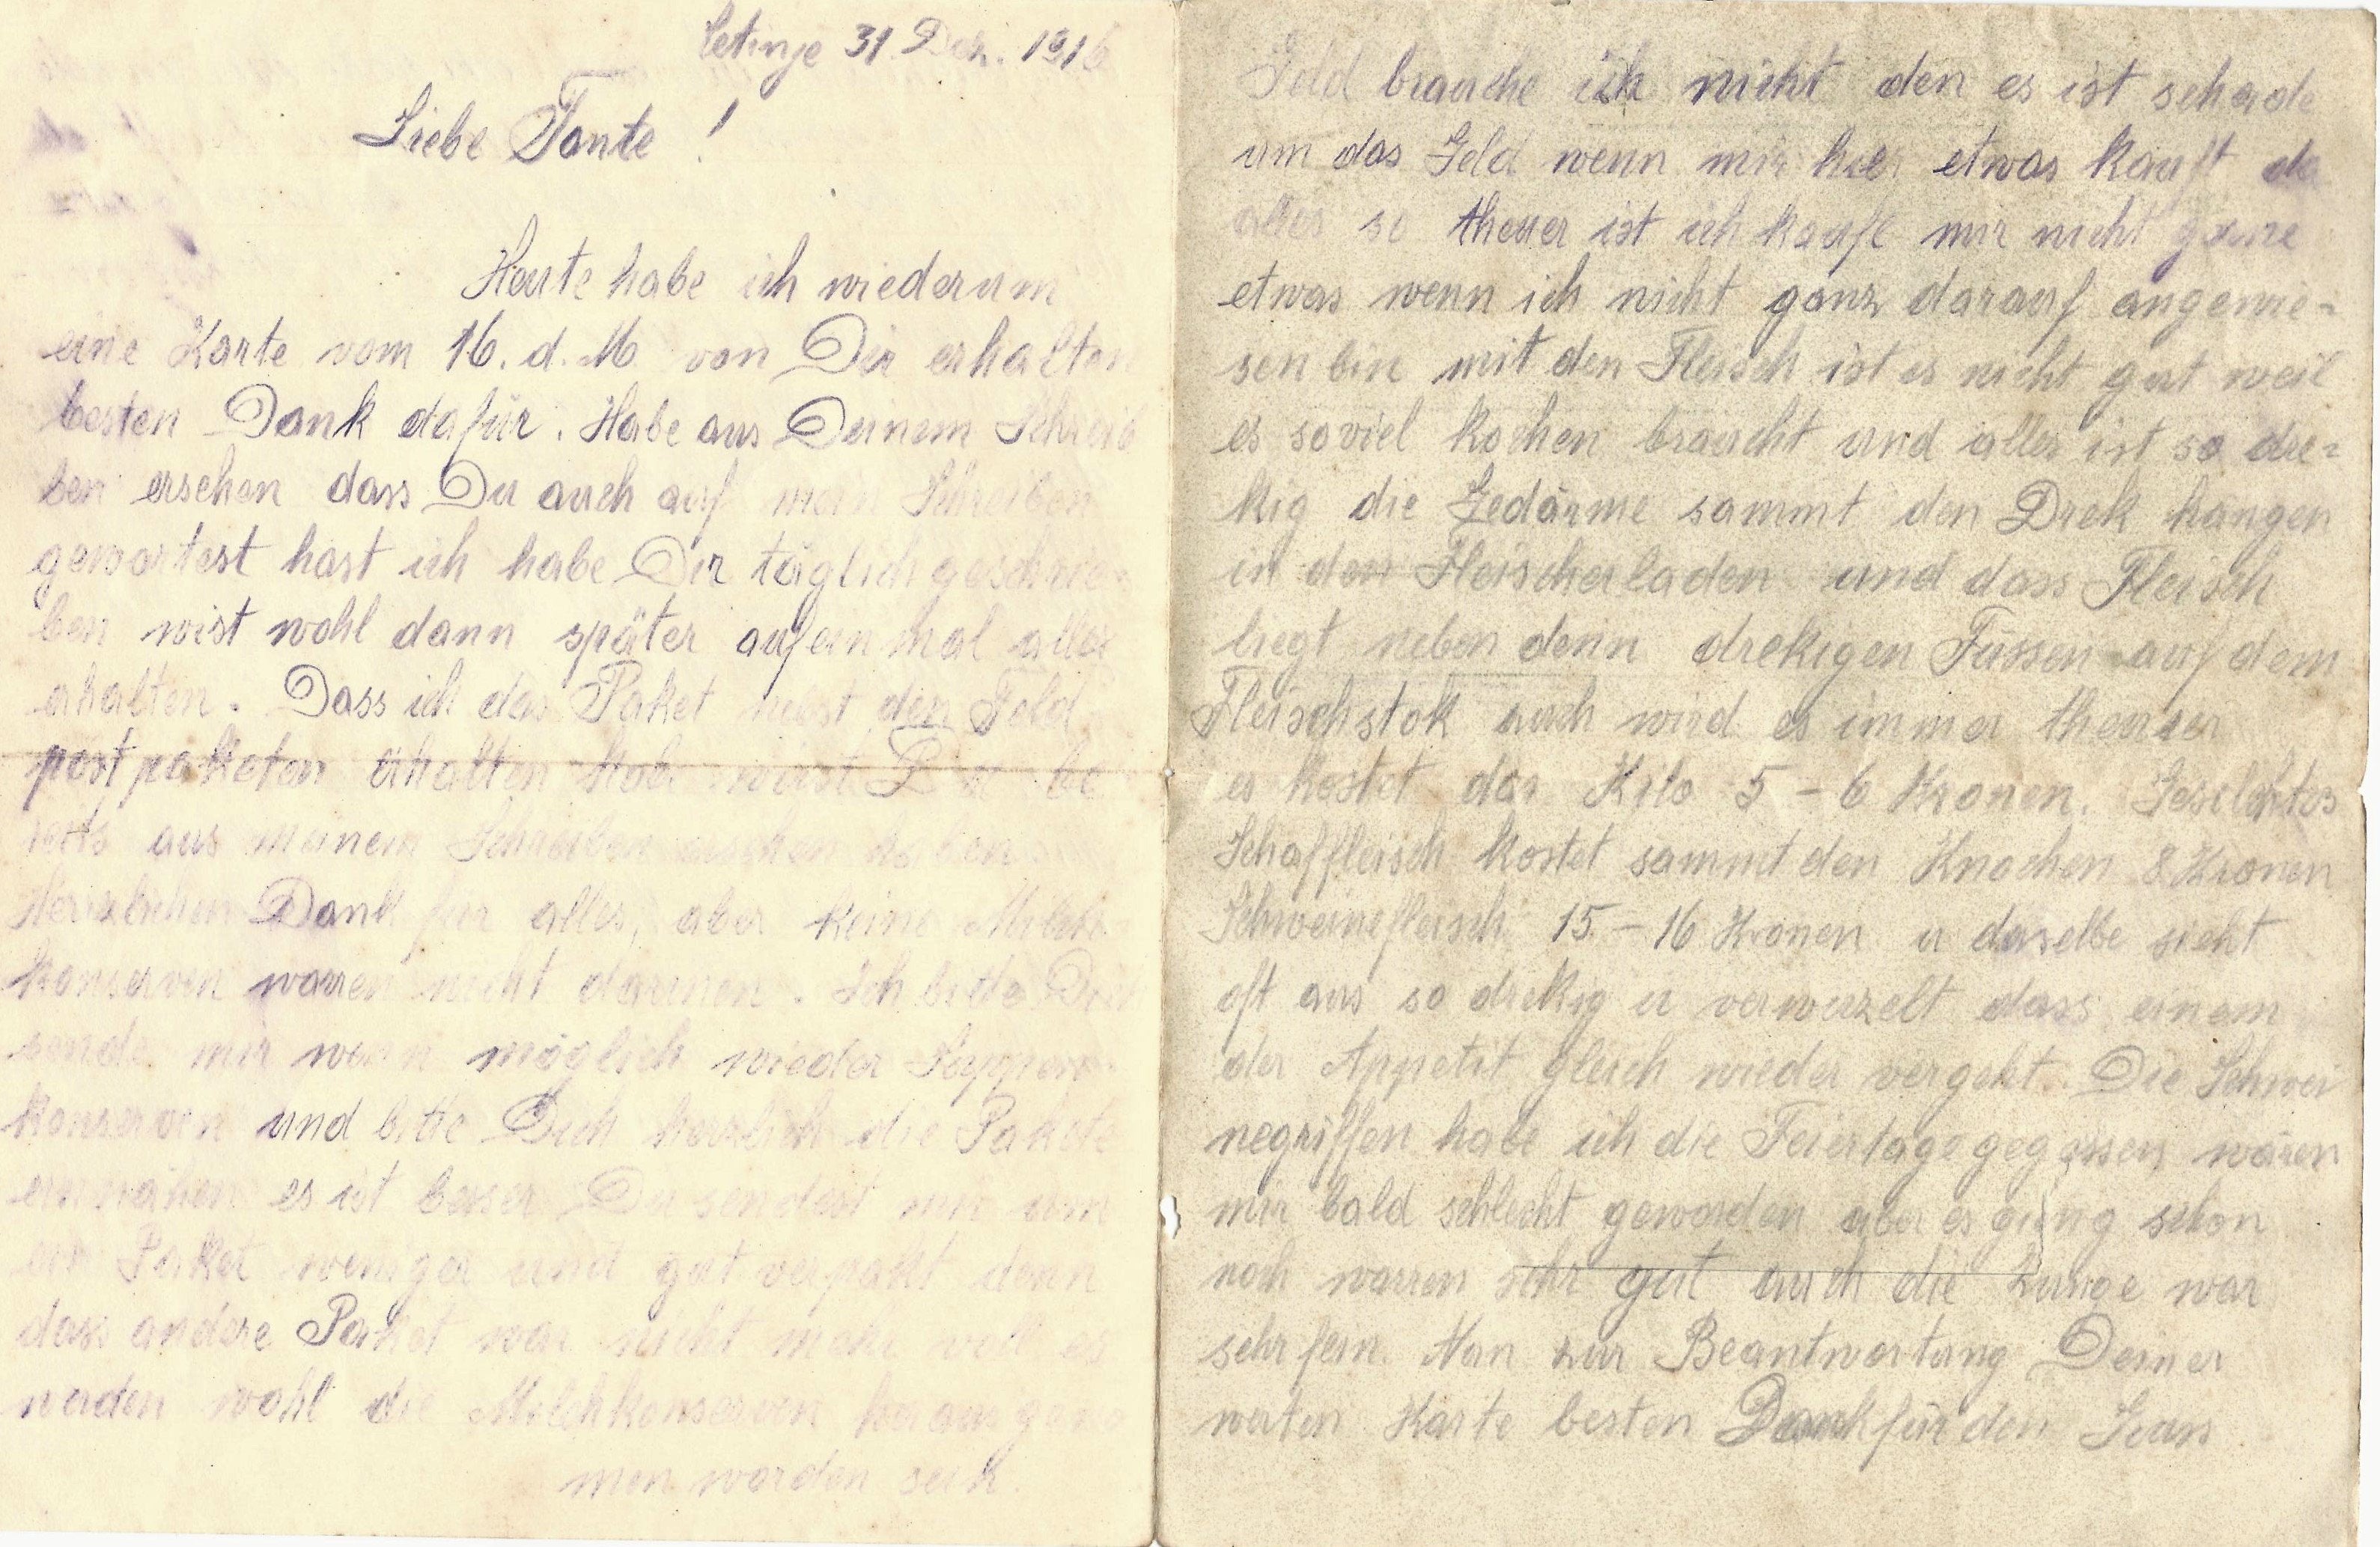 Cetinje 31 Dez. 1916
Liebe Tante !
Heute habe ich wiederum
eine Karte vom 16. d. M. von Dir erhalten
besten Dank dafür. Habe aus Deinem Schrei
ben ersehen dass Du auch auf mein Schreiben
gewartest hast ich habe Dir täglich geschrie-
ben wist wohl dann später aufeinmal alles
erhalten. Dass ich das Paket den Feld
postpaketen erhalten habe wirst Du be
reits aus meinem Schreiben ersehen haben
Herzlichen Dank für alles, aber keine Milch
konserven warren nicht darinen. Ich bitte Dich
sende mir wenn möglich wieder Suppen-
konserven und bitte Dich herzlich die Pakete
einnähen es ist besser Du sendest mir um
ein Paket weniger und gut verpakt denn
dass andere Paket war nicht mehr voll es
werden wohl die Milchkonserven herausgeno
men worden sein.
Geld brauche ich nicht den es ist schade
um das Geld wenn mir hier etwas kauft da
alles so theuer ist ich kaufe mir nicht gerne
etwas wenn ich nicht ganz darauf angewie-
sen bin mit den Fleisch ist es nicht gut weil
es soviel kochen braucht und alles ist so dre-
kig die Gedärme sammt den Drek hängen
in den Fleischerladen und dass Fleisch
liegt neben denn drekigen Füssen auf dem
Fleischstok auch wird es immer theurer
es kostet das Kilo 5 – 6 Kronen. Geselchtes
Schaffleisch kostet sammt den Knochen 8 Kronen
Schweinefleisch 15 – 16 Kronen u dasselbe sieht
oft aus so drekig u verwuzelt dass einem
der Appetit gleich wieder vergeht. Die Schwei
negriffen habe ich die Feiertage gegessen wären
mir bald schlecht geworden aber es ging schon
noch warren sehr gut auch die Zunge war
sehr fein. Nun zur Beantwortung Deiner
werten Karte besten Dank für den Gruss